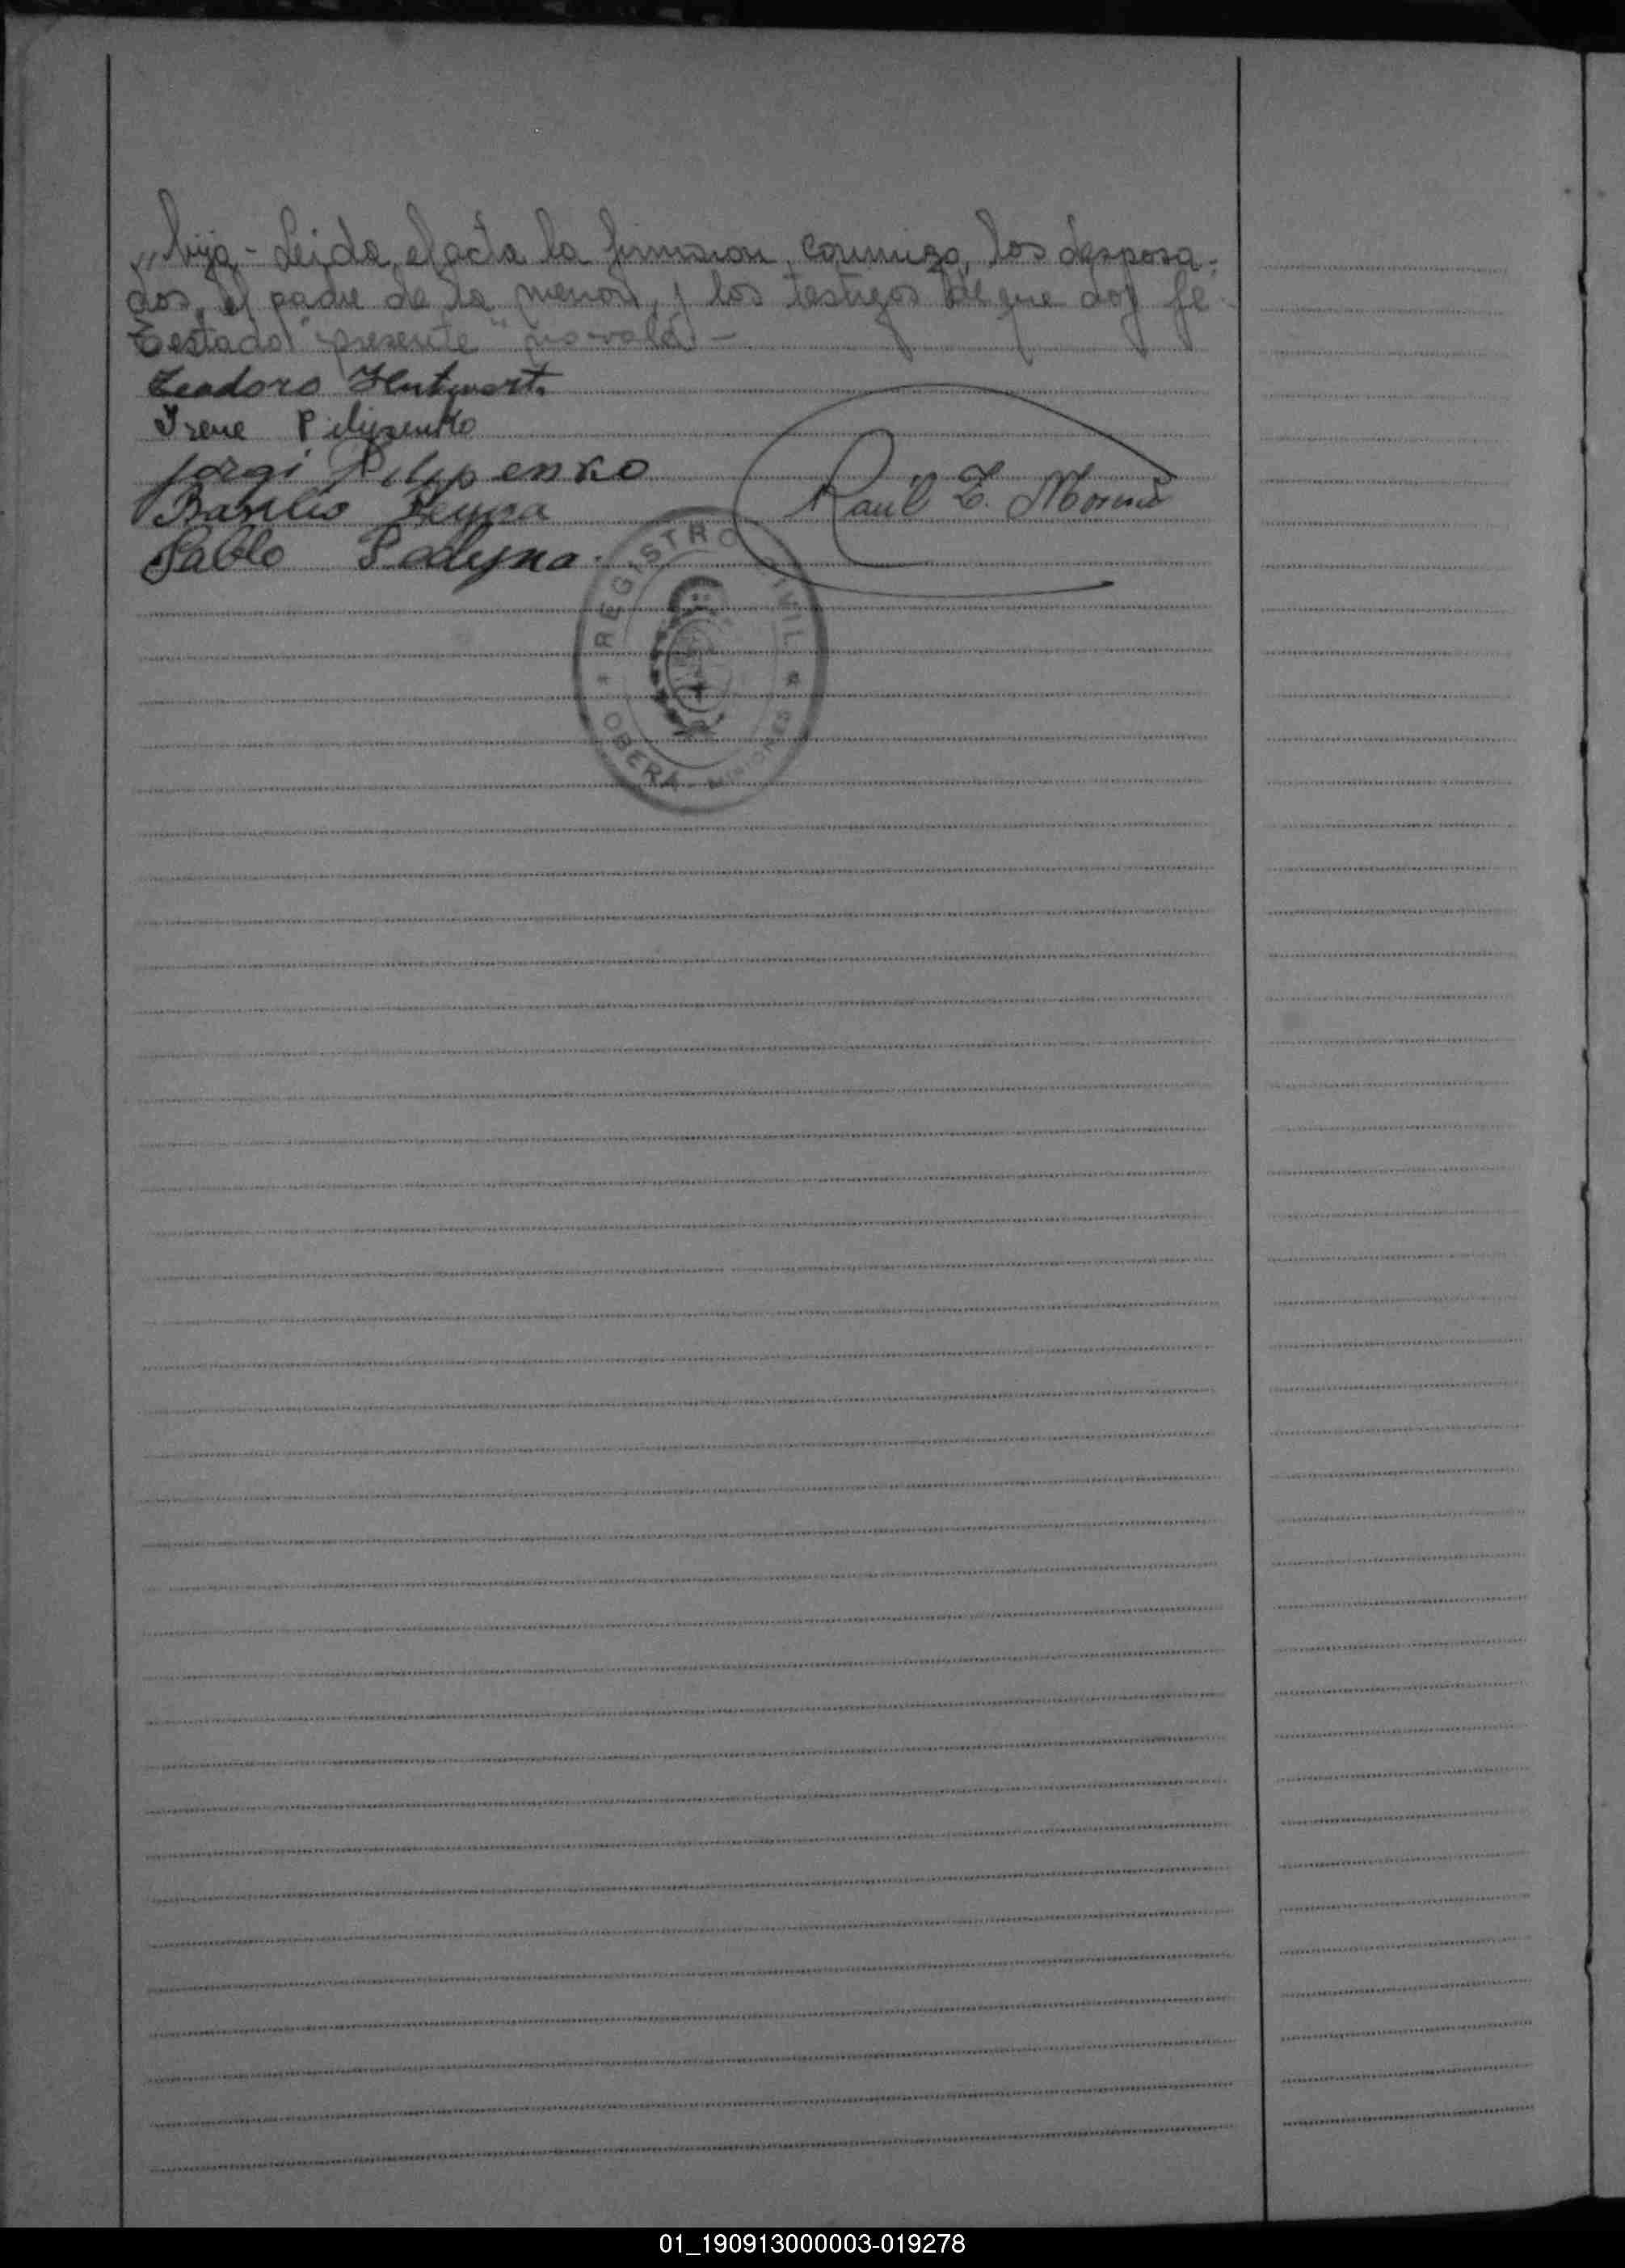 „ hija - Leida, el acta la firmaron, conmigo, los desposa-
dos, el padre de la menor, y los testigos de que doy fé -
Testado "presente" no vale -
Teodoro
Irene Pilipenko
Jorgi Pilipenko
Basilio
Raúl
Pablo Padyna.
REGISTRO CIVIL
* OBERA - MISIONES *
01_190913000003-019278